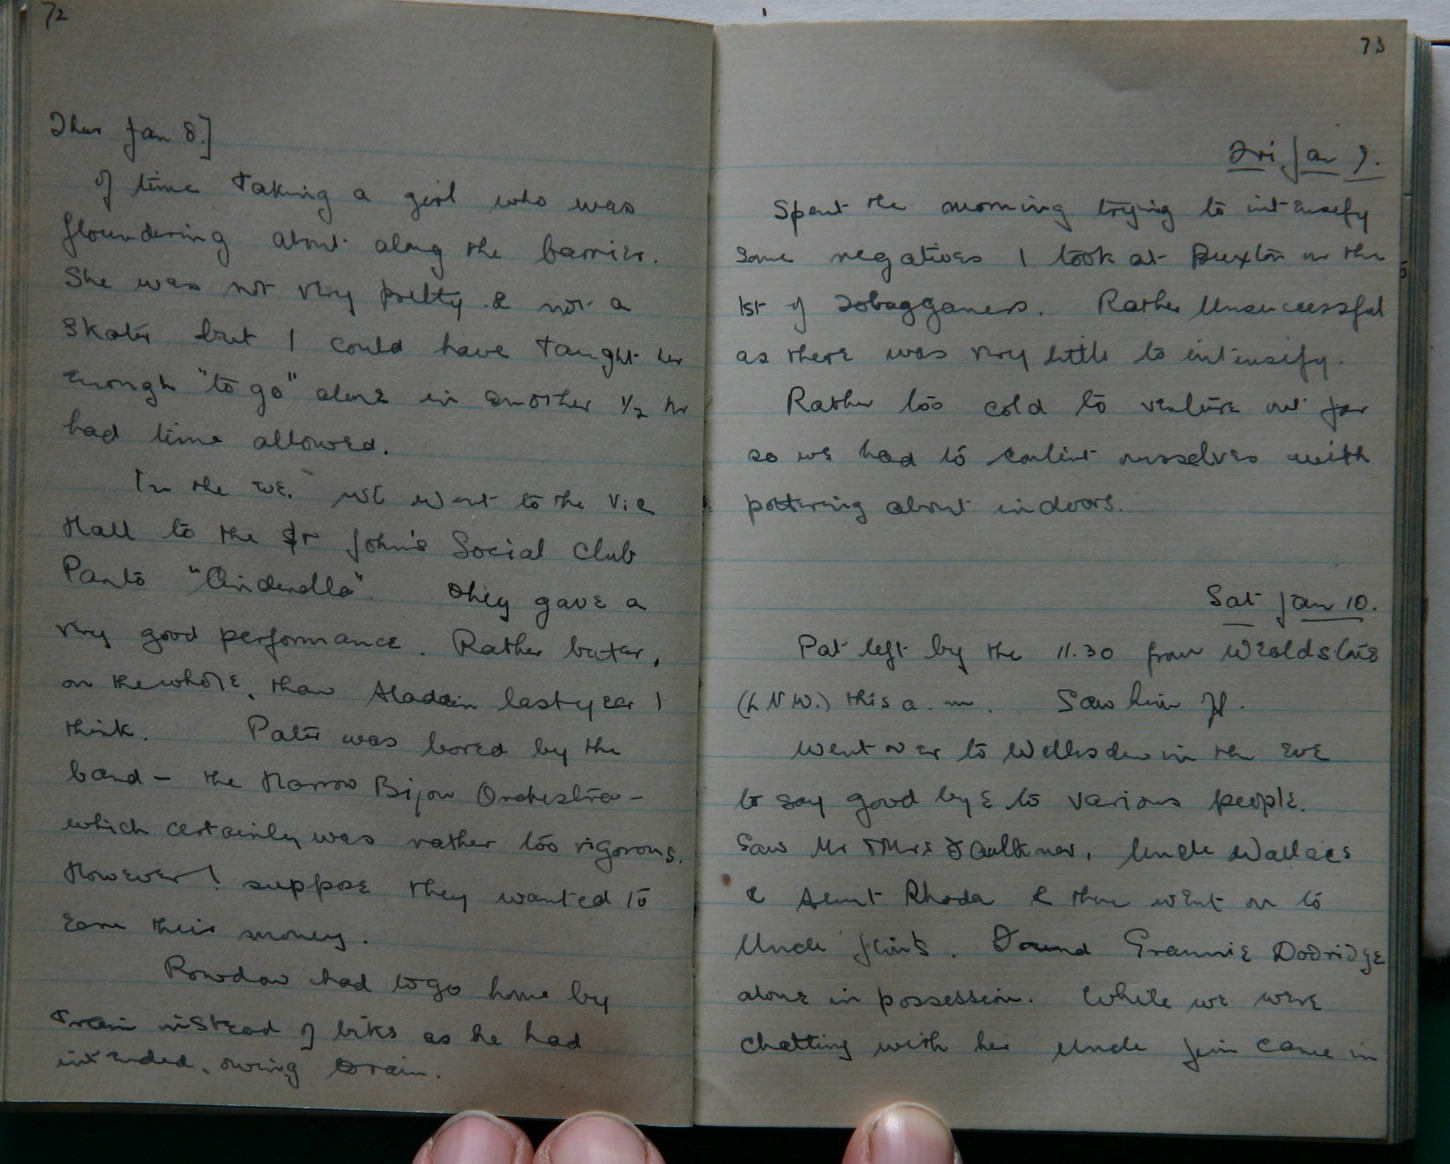 72
Thur Jan 8.]
of time taking a girl who was
floundering about along the barrier.
She was not very pretty & not a
skater but I could have taught her
enough "to go" alone in another 1/2 hr
had time allowed.
In the eve. we went to the Vic
Hall to the St John's Social Club
Panto "Cinderella". They gave a
very good performance. Rather better,
on the whole, than Aladdin last year I
think. Pater was bored by the
band - the Harrow Bijou Orchestra -
which certainly was rather too vigorous.
However I suppose they wanted to
earn their money.
Rowdon had to go home by
train instead of bike as he had
intended, owing to rain.
73
Fri Jan 9.
Spent the morning trying to intensify
some negatives I took at Buxton on the
1st of Tobagganers. Rather unsuccessful
as there was very little to intensify.
Rather too cold to venture out far
so we had to content ourselves with
pottering about indoors.
Sat Jan 10.
Pat left by the 11.30 from Wealdstone
(L N W.) this a.m. Saw him off.
Went over to Willesden in the eve
to say good bye to various people.
Saw Mr & Mrs Faulkner, Uncle Wallace
& Aunt Rhoda & then went on to
Uncle Jim's. Found Grannie Dodridge
alone in possession. While we were
chatting with her Uncle Jim came in